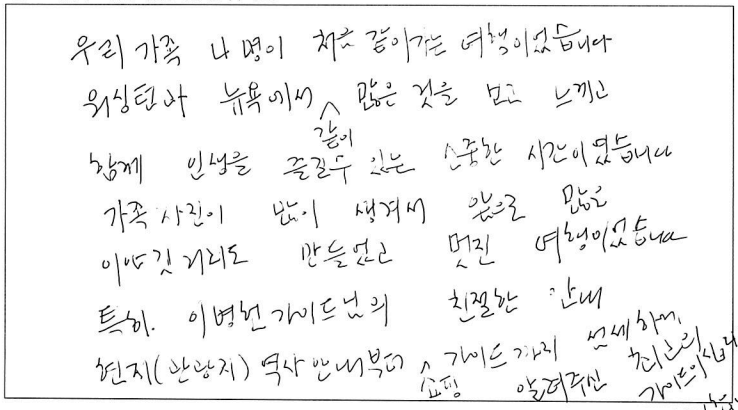 우리 가족 4명이 처음 같이가는 여행이었습니다
워싱턴과 뉴욕에서 같이 많은 것을 보고 느끼고
함께 인생을 즐길수 있는 소중한 시간이였습니다
가족사진이 많이 생겨서 앞으로 많은
이야깃거리도 만들었고 멋진 여행이었습니다
특히. 이병헌가이드님의 친절한 안내
현지(관광지) 역사안내부터 쇼핑 가이드까지 섬세하게,
알려주신 최고의
가이드이십니다